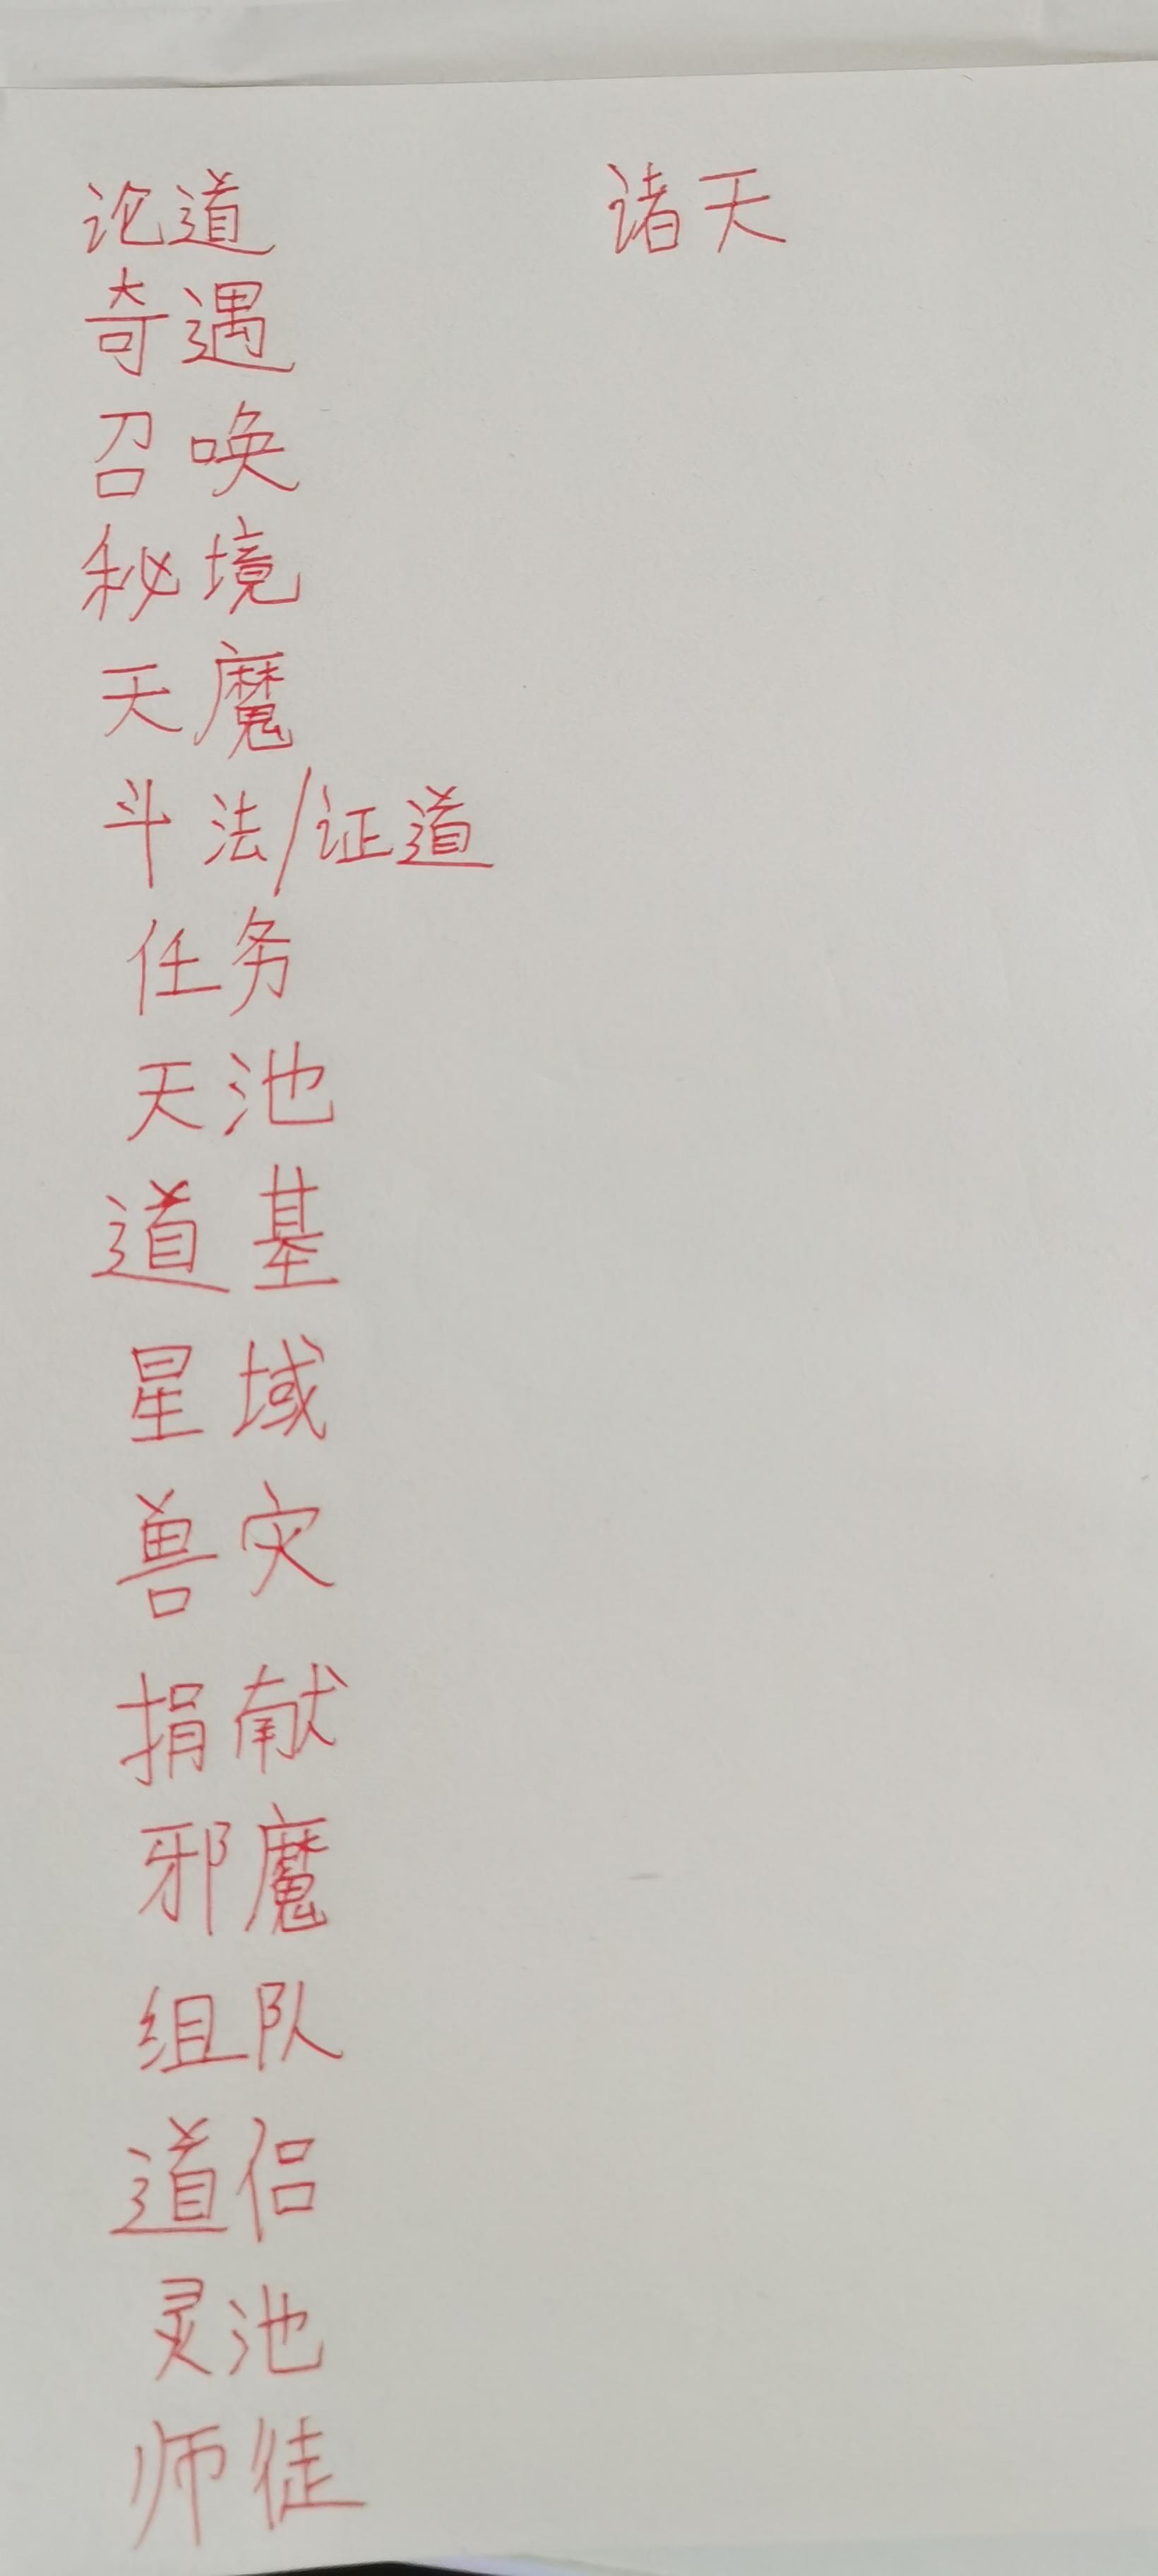 论道 诸天
奇遇
召唤
秘境
天魔
斗法/证道
任务
天池
道基
星域
兽灾
捐献
邪魔
组队
道侣
灵池
师徒